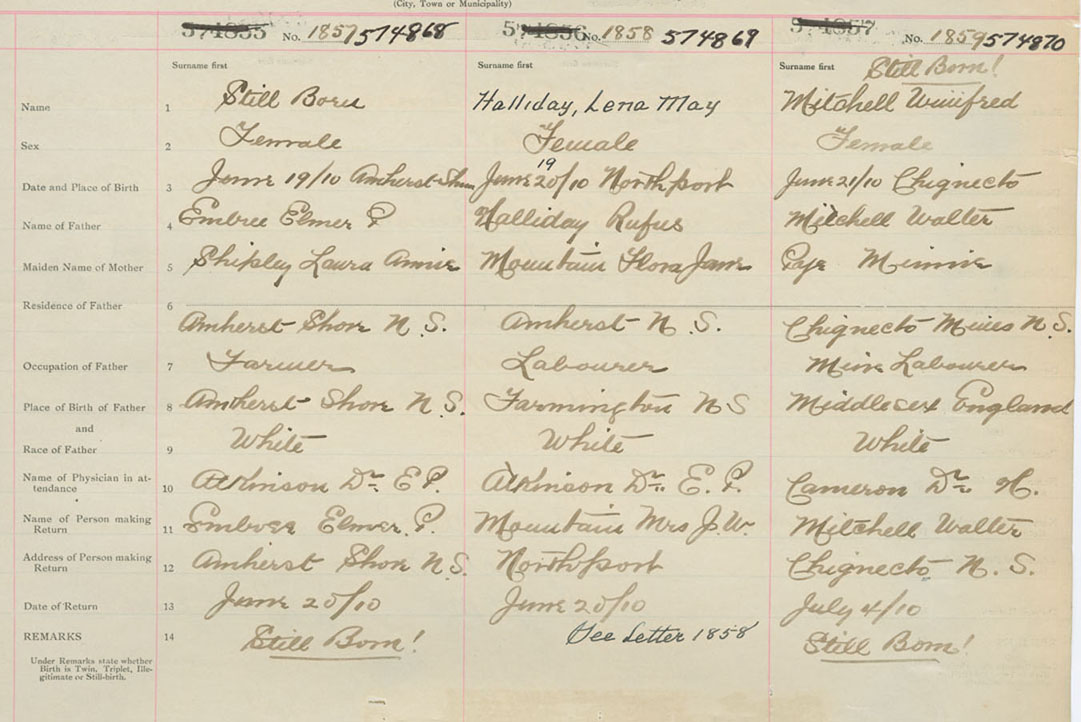 (City, Town or Municipality)
574855 No. 1857 574868 574856 No. 1858 574869 574857 No. 1859 574870
Surname first Surname first Surname first Still Born!
Name 1 Still Born Halliday, Lena May Mitchell Winifred
Sex 2 Female Female Female
19
Date and Place of Birth 3 June 19/10 Amherst Shore June 20/10 Northport June 21/10 Chignecto
Name of Father 4 Embree Elmer P Halliday Rufus Mitchell Walter
Maiden Name of Mother 5 Shipley Laura Annie Mountain Flora Jane Minnie
Residence of Father 6
Amherst Shore N.S. Amherst N.S. Chignecto Mines N.S.
Occupation of Father 7 Farmer Labourer Mine Labourer
Place of Birth of Father 8 Amherst Shore N.S. Farmington NS Middlesex England
and
Race of Father 9 White White White
Name of Physician in at-
tendance 10 Atkinson Dr. E P. Atkinson Dr. E. P. Cameron Dr. H.
Name of Person making
Return 11 Embree Elmer. P. Mountain Mrs J.W. Mitchell Walter
Address of Person making
Return 12 Amherst Shore N.S. Northport Chignecto N.S.
Date of Return 13 June 20/10 June 20/10 July 4/10
REMARKS 14 Still Born! See Letter 1858 Still Born!
Under Remarks state whether
Birth is Twin, Triplet, Ille-
gitimate or Still-birth.